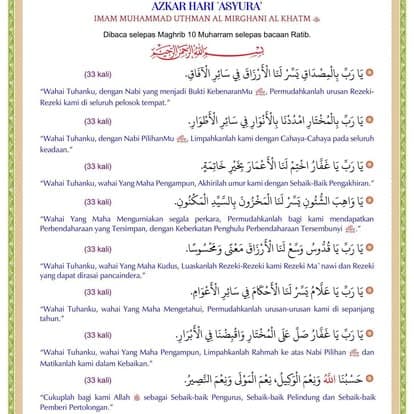 AZKAR HARI 'ASYURA'
IMAM MUHAMMAD UTHMAN AL MIRGHANI AL KHATM
Dibaca selepas Maghrib 10 Muharram selepas bacaan Ratib.
بِسْمِ اللَّهِ الرَّحْمَٰنِ الرَّحِيمِ
يَا رَبِّ بِالْمِصْدَاقِ يَسِّرْ لَنَا الْأَرْزَاقَ فِي سَائِرِ الْآفَاقِ. (33 kali)
"Wahai Tuhanku, dengan Nabi yang menjadi Bukti KebenaranMu ﷺ, Permudahkanlah urusan Rezeki-
Rezeki kami di seluruh pelosok tempat."
يَا رَبِّ بِالْمُخْتَارِ امْدُدْنَا بِالْأَنْوَارِ فِي سَائِرِ الْأَطْوَارِ. (33 kali)
"Wahai Tuhanku, dengan Nabi PilihanMu ﷺ, Limpahkanlah kami dengan Cahaya-Cahaya pada seluruh
keadaan."
يَا رَبِّ يَا غَفَّارُ اخْتِمْ لَنَا الْأَعْمَارَ بِخَيْرِ خَاتِمَةٍ. (33 kali)
"Wahai Tuhanku, wahai Yang Maha Pengampun, Akhirilah umur kami dengan Sebaik-Baik Pengakhiran."
يَا وَاهِبَ الشُّئُونِ يَسِّرْ لَنَا الْمَخْزُونَ بِالسَّيِّدِ الْمَكْنُونِ. (33 kali)
"Wahai Yang Maha Mengurniakan segala perkara, Permudahkanlah bagi kami mendapatkan
Perbendaharaan yang Tersimpan, dengan Keberkatan Penghulu Perbendaharaan Tersembunyi ﷺ."
يَا رَبِّ يَا قُدُّوسُ وَسِّعْ لَنَا الْأَرْزَاقَ مَعْنًى وَمَحْسُوسًا. (33 kali)
"Wahai Tuhanku, wahai Yang Maha Kudus, Luaskanlah Rezeki-Rezeki kami Rezeki Ma`nawi dan Rezeki
yang dapat dirasai pancaindera."
يَا رَبِّ يَا عَلَّامُ يَسِّرْ لَنَا الْأَحْكَامَ فِي سَائِرِ الْأَعْوَامِ. (33 kali)
"Wahai Tuhanku, wahai Yang Maha Mengetahui, Permudahkanlah urusan-urusan kami di sepanjang
tahun."
يَا رَبِّ يَا غَفَّارُ صَلِّ عَلَى الْمُخْتَارِ وَاقْبِضْنَا فِي الْأَبْرَارِ. (33 kali)
"Wahai Tuhanku, wahai Yang Maha Pengampun, Limpahkanlah Rahmah ke atas Nabi Pilihan ﷺ dan
Matikanlah kami dalam Kebaikan."
حَسْبُنَا اللَّهُ وَنِعْمَ الْوَكِيلُ، نِعْمَ الْمَوْلَى وَنِعْمَ النَّصِيرُ. (33 kali)
"Cukuplah bagi kami Allah ﷻ sebagai Sebaik-baik Pengurus, Sebaik-baik Pelindung dan Sebaik-baik
Pemberi Pertolongan."